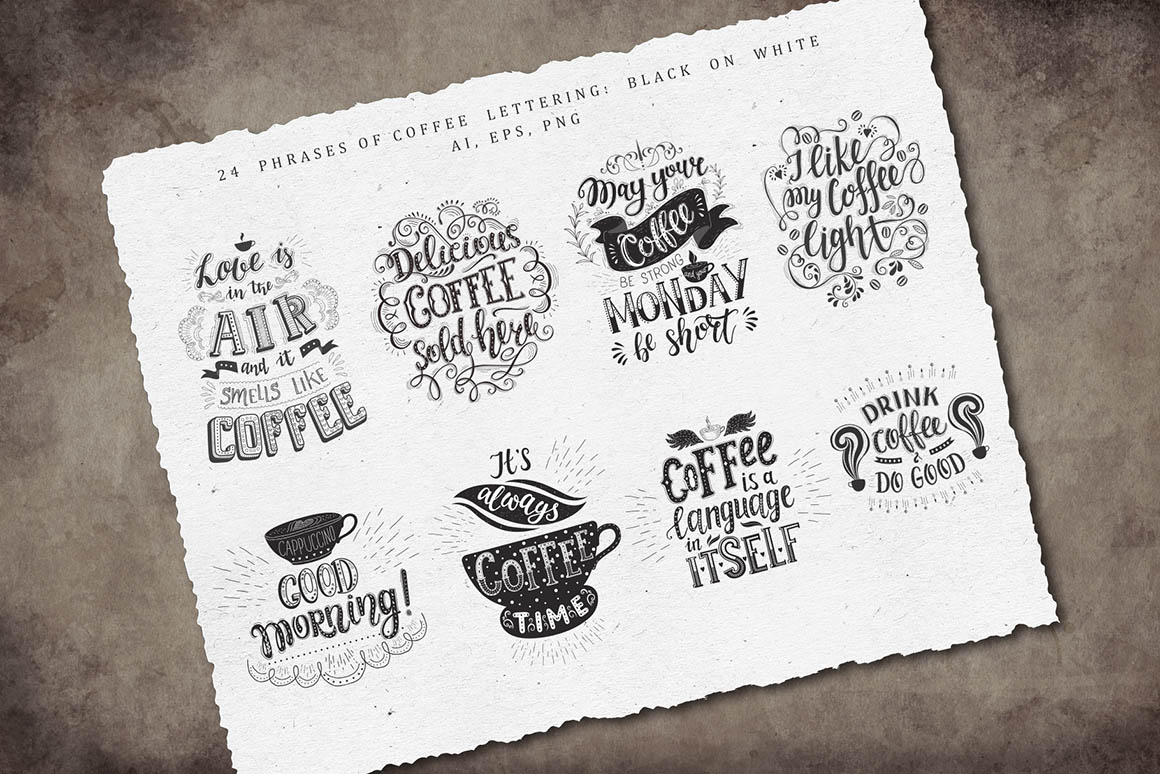 24 PHRASES OF COFFEE LETTERING: BLACK ON WHITE
AI, EPS, PNG
Love is
in the
AIR
and it
SMELLS LIKE
COFFEE
Delicious
COFFEE
sold here
May your
Coffee
BE STRONG
and your
MONDAY
be short
I like
my Coffee
light
CAPPUCCINO
GOOD
morning!
It's
always
COFFEE
TIME
COFFee
is a
language
in
ITSELF
DRINK
coffee
&
DO GOOD